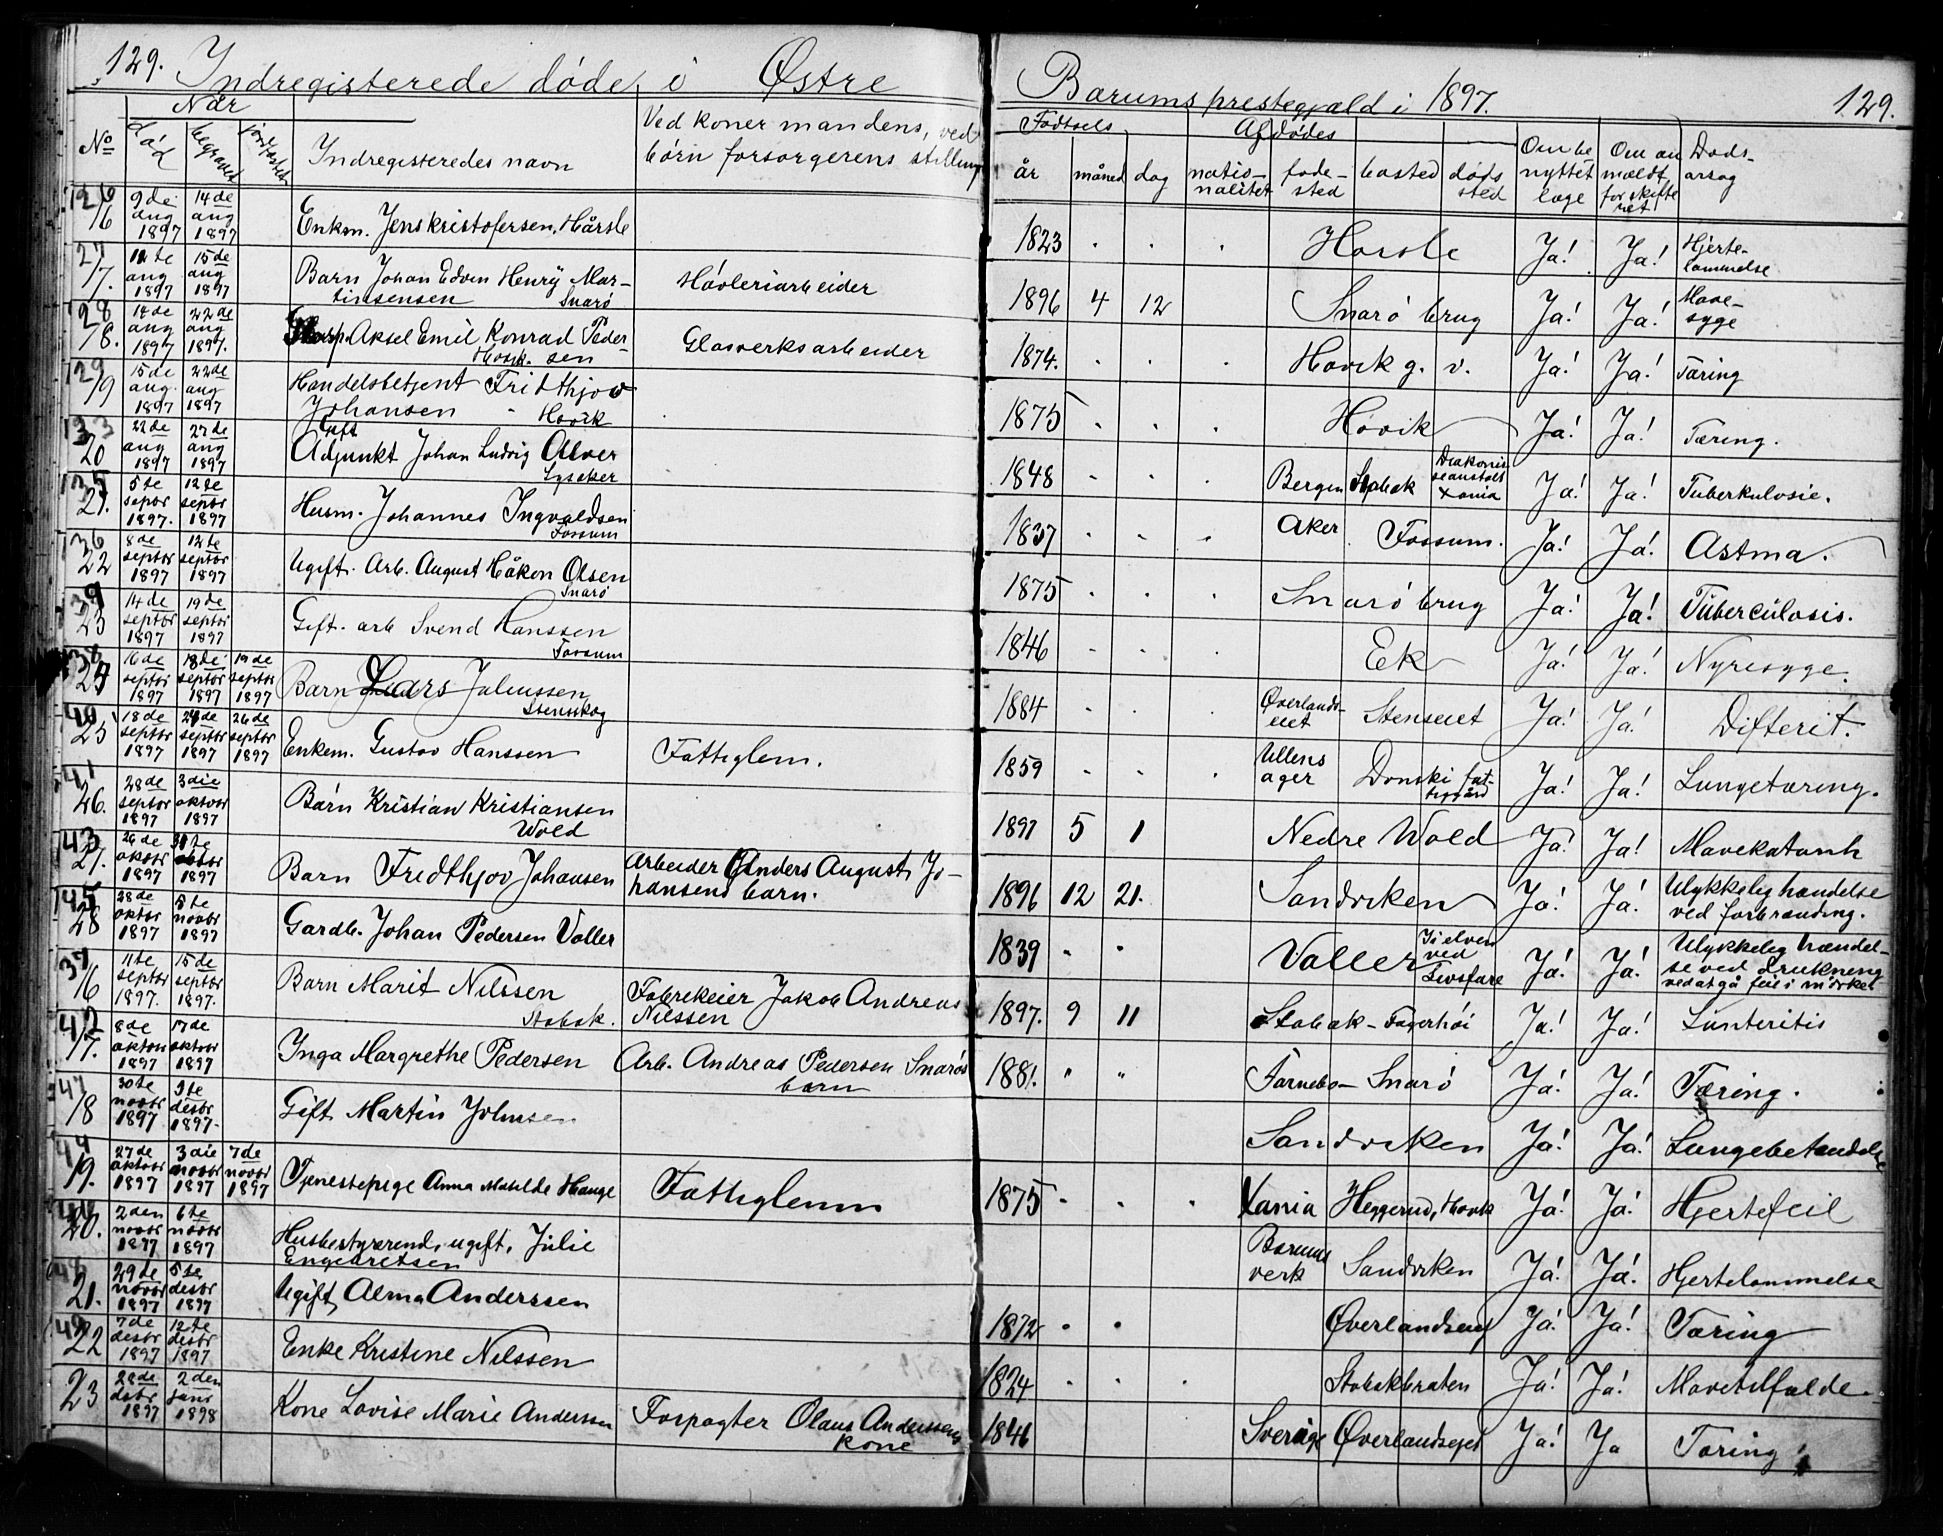 129. Indregisterede døde i Østre Bærums prestegjæld i 1897. 129.
Når
No død begravet jordfæstet Indregisteredes navn Ved koner mandens, ved
børn forsørgerens stilling
Fødsels Afdødes
år måned dag natio-
nalitet føde-
sted bosted døds
sted Om be
nyttet
læge Om an
mældt
for skifte
ret Døds-
årsag
126
16 9de
aug
1897 14de
aug
1897 Enkm. Jens kristofersen, Hårsle 1823 Horsle Ja! Ja! Hjerte-
lammelse
27
17. 11te
aug
1897 15de
aug
1897 Barn Johan Edven Henrÿ Mar-
tinsensen Snarø Høvleriarbeider 1896 4 12 Snarø brug Ja! Ja! Mave-
syge
128
18. 14de
aug
1897 22de
aug
1897. Aksel Emil Konrad Peder-
sen Glasverksarbeider 1874. Høvik g. v. Ja! Ja! Tæring
129
19 15de
aug.
1897 22de
aug
1897 Handelsbetjent Fridthjov
Johansen - Høvik 1875 Høvik Ja! Ja! Tæring.
133
20 22de
aug
1897 27de
aug
1897 Gift
Adjunkt Johan Ludvig Alver
Lysaker 1848 Bergen Stabæk Diakonis
seanstalt
Xania Ja! Ja! Tuberkulosie.
135
21. 5te
septbr
1897. 12te
septbr
1897 Husm. Johannes Ingvaldsen
Fossum 1837 Aker Fossum. Ja! Ja! Astma.
136
22 8de
septbr
1897 12te
septbr
1897 Ugift. Arb. August Håkon Olsen
Snarø 1875 Snarø brug Ja! Ja! Tuberculosis.
139
23 14de
septbr
1897 19de
septbr
1897 Gift. arb Svend Hanssen
Fossum 1846 Ek Ja! Ja! Nyresyge.
138
24 16de
septbr
1897 18de
septbr
1897 19de
septbr
1897 Barn Lars Julenssen
Stenskog 1884 Øverlands-
eiet Stenseiet Ja! Ja! Difterit.
140
25 18de
septbr
1897 24de
septbr
1897 26de
septbr
1897 Enkem. Gustav Hanssen Fattiglem. 1859 Ullens
ager Donski fat-
tiggård Ja! Ja! Lungetæring.
141
26. 28de
septbr
1897 3die
oktobr
1897 Barn Kristian Kristiansen
Wold 1897 5 1 Nedre Wold Ja! Ja! Mavekatarrh
143
27. 26de
oktobr
1897 31te
oktbr
1897 Barn Fredthjov Johansen Arbeider Anders August Jo-
hansens barn. 1896 12 21. Sandviken Ja! Ja! Ulykkelig hændelse
ved forbrænding.
145
28 28de
oktbr
1897 5te
novbr
1897 Gardb. Johan Pedersen Valler 1839 Valler I elven
ved
Ja! Ja! Ulykkelig hændel-
se ved drukning
ved at gå feil i mørket
137
16 11te
septbr
1897. 15de
septbr
1897. Barn Marit Nilssen
Stabæk. Fabrikeier Jakob Andreas
Nilssen 1897. 9 11 Stabæk - Fagerhøi Ja! Ja!
142
17. 8de
oktobr
1897 17de
oktobr
1897 Inga Margrethe Pedersen Arb. Andreas Pedersen Snarøs
barn 1881. Fornebo - Snarø Ja! Ja! Tæring.
147
18 30te
novbr
1897 3te
desbr
1897. Gift Martin Johnsen Sandviken Ja! Ja! Lungebetændelse
144
19. 27de
oktobr
1897 3die
novbr
1897 7de
novbr
1897 Tjenestepige Anna Matilde Hauge Fattiglem 1875 Xania Heggerud, Høvik Ja! Ja! Hjertefeil
146
20. 2den
novbr
1897 6te
novbr
1897 Husbestyrerend, ugift, Julie
Engebretsen Bærums
verk Sandviken Ja! Ja! Hjertelammelse
148
21. 29de
novbr
1897 5te
desbr
1897 Ugift, Alma Anderssen 1872 Øverlandseng Ja! Ja! Tæring
149
22 7de
desbr
1897 12te
desbr
1897 Enke Kristine Nilssen 1824 Stabækbraten Ja! Ja! Mavetilfælde
23 28de
desbr
1897 2den
janr
1898 Kone Lovise Marie Anderssen Forpagter Olaus Anderssens
kone 1846 Sverige Øverlandseiet Ja! Ja Tæring